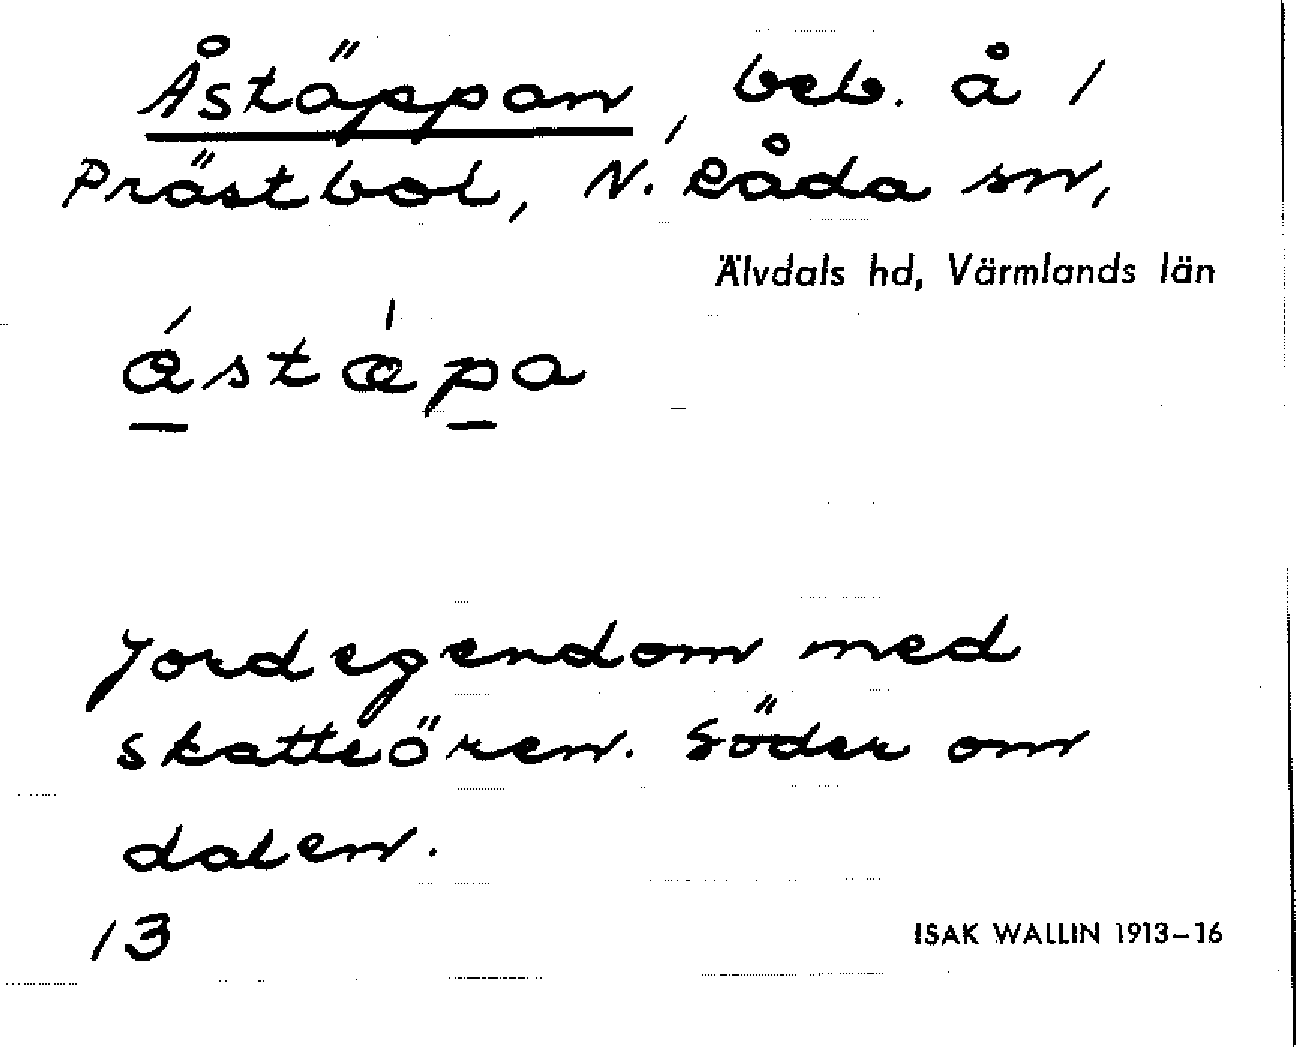 Åstäppan, beb. å 1
Prästbol, N. Råda sn,
Älvdals hd, Värmlands län
ástæ̀pa
Jordegendom med
skatteören. Söder om
dalen.
13
ISAK WALLIN 1913–16